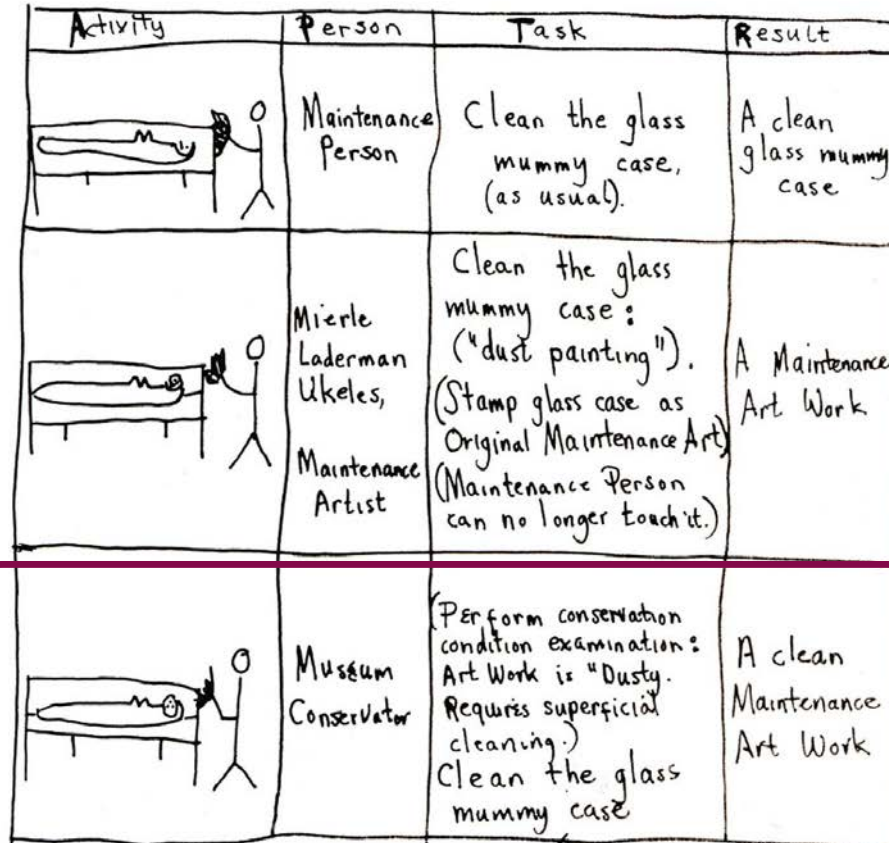 Activity
Person
Task
Result
Maintenance
Person
Clean the glass
mummy case,
(as usual).
A clean
glass mummy
case
Mierle
Laderman
Ukeles,
Maintenance
Artist
Clean the glass
mummy case:
("dust painting").
(Stamp glass case as
Original Maintenance Art)
(Maintenance Person
can no longer touch it.)
A Maintenance
Art Work
Museum
Conservator
(Perform conservation
condition examination:
Art Work is "Dusty.
Requires superficial
cleaning.)
Clean the glass
mummy case
A clean
Maintenance
Art Work